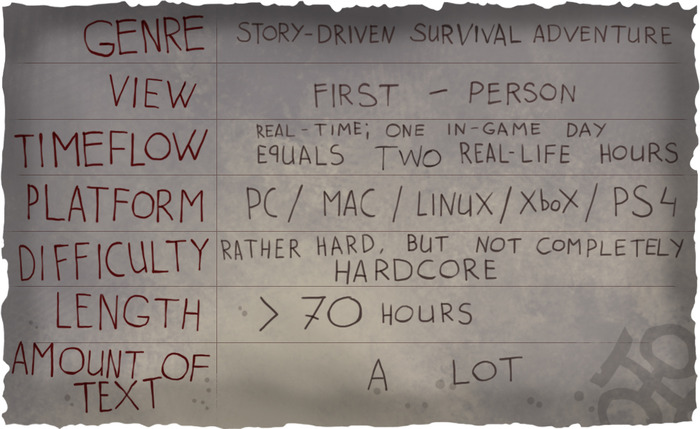 GENRE STORY-DRIVEN SURVIVAL ADVENTURE
VIEW FIRST - PERSON
TIMEFLOW REAL-TIME; ONE IN-GAME DAY
EQUALS TWO REAL-LIFE HOURS
PLATFORM PC / MAC / LINUX / XboX / PS4
DIFFICULTY RATHER HARD, BUT NOT COMPLETELY
HARDCORE
LENGTH > 70 HOURS
AMOUNT OF
TEXT A LOT